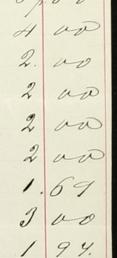 4 00
2. 00
2 00
2 00
2 00
1.69
3 00
1 97.